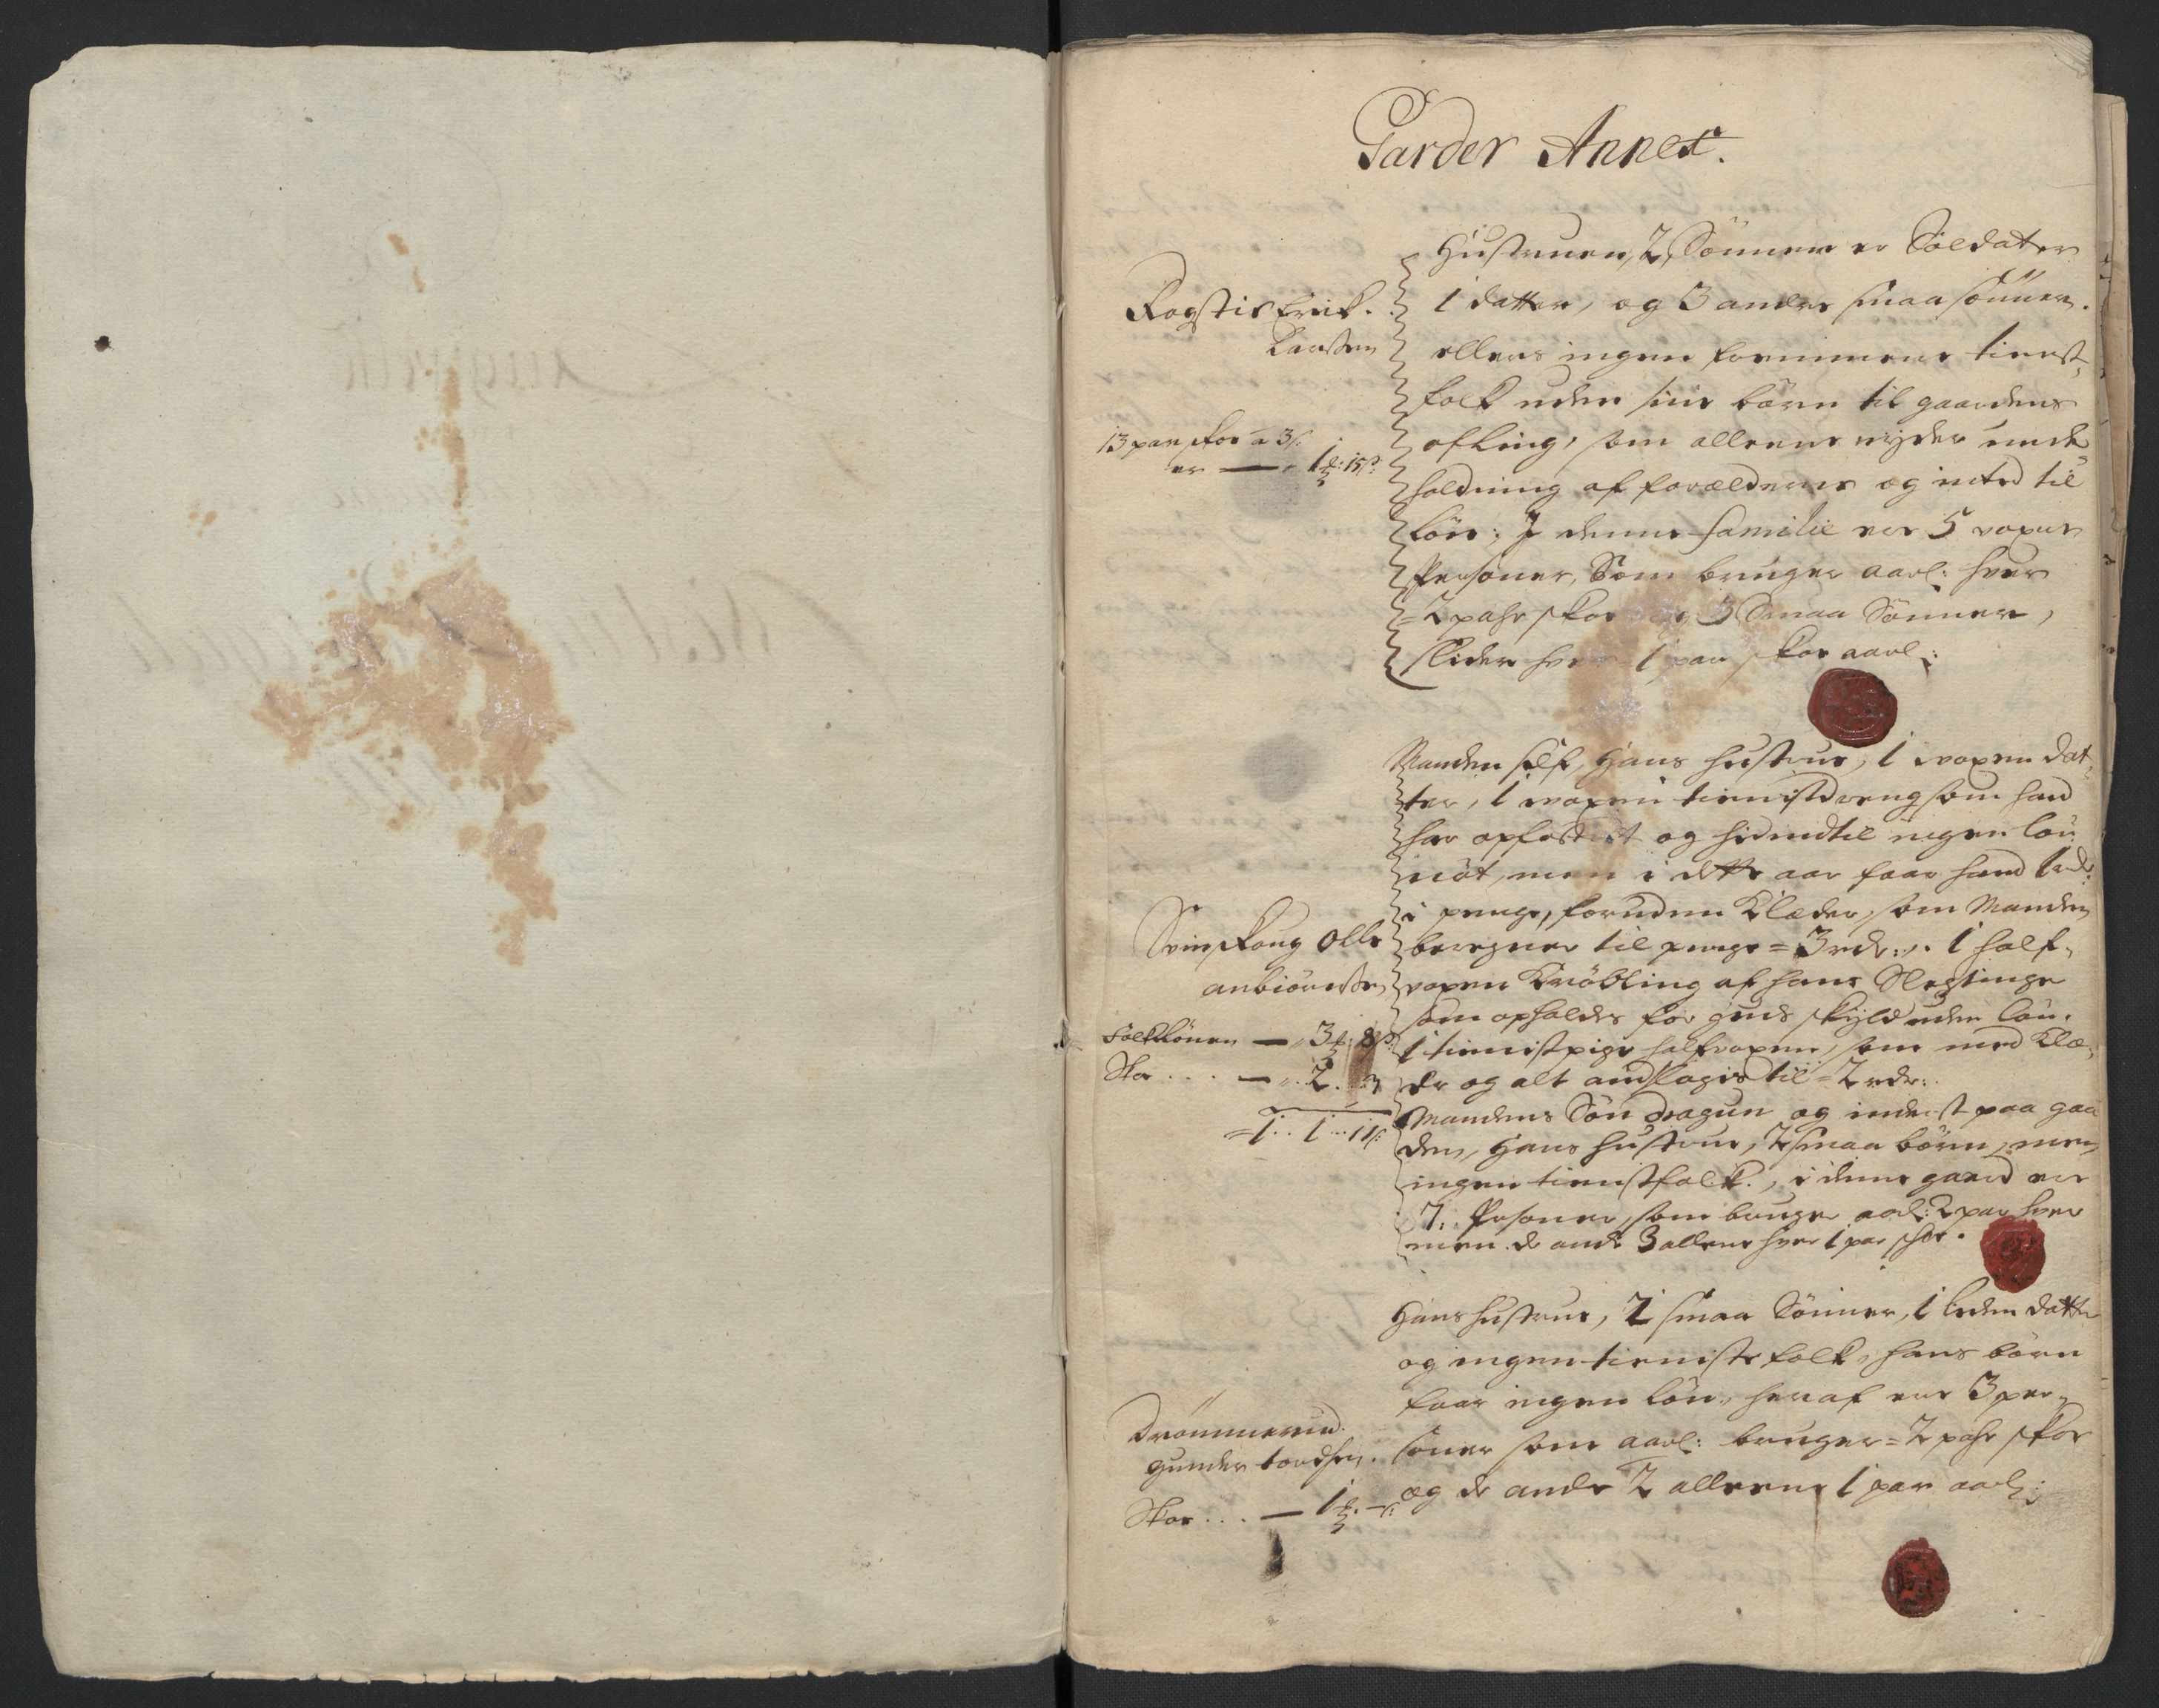 Garder Annex.
Rogstis Erich.
Larsen
13 par skoe a 3 s:
er — 1 15 s:
Hustruen, 2 Sönner er Soldater
1 datter, og 3 andre smaa sönner.
ellers ingen fremmene tienst-
folk uden sine börn til gaardens
afling, som alleene nyder unde-
holdning af forælderne og inted til
lön; I denne familie er 5 voxne
Personer, Som bruger aarl: hver
= 2 pahr skoe 3 Smaa Sönner,
slider hver 1 par skoe aarl:
Svinskoug Olle
anbiörnsen
Folkelönen — 3 8 s:
Skoe . . . — 2 . 3
= 1 . . 1 . . 11 s:
Manden self, Hans hustrue, 1 voxen dat-
ter, 1 voxen tienistdreng som hand
har opfostret og hidindtil ingen lön
nöt, men i dette aar faar hand 1 rdr:
i penge, foruden Klæder, som Manden
beregner til penge = 3 rdr: . 1 half-
voxen Kröbling af hans Slegtinge
som opholdes for guds skyld uden lön.
1 tienistpige halfvoxen, som med Klæ-
der og alt andslagis til = 2 rdr:
Mandens Sön dragun og inderst paa gaa
den, Hans hustrue, 2 smaa börn, men
ingen tienistfolk., i denne gaard er
7. Personer, som bruger aarl: 2 par hver
men de andre 3 allene hver 1 par skoe.
Drömmerud.
gunder tordsen.
Skoe . . . — 1
Hans hustrue, 2 smaa Sönner, 1 liden datter
og ingen tieniste folk, hans börn
faar ingen lön, heraf er 3 per-
soner som aarl: bruger = 2 pahr skoe
og de andre 2 alleene 1 par aarl: